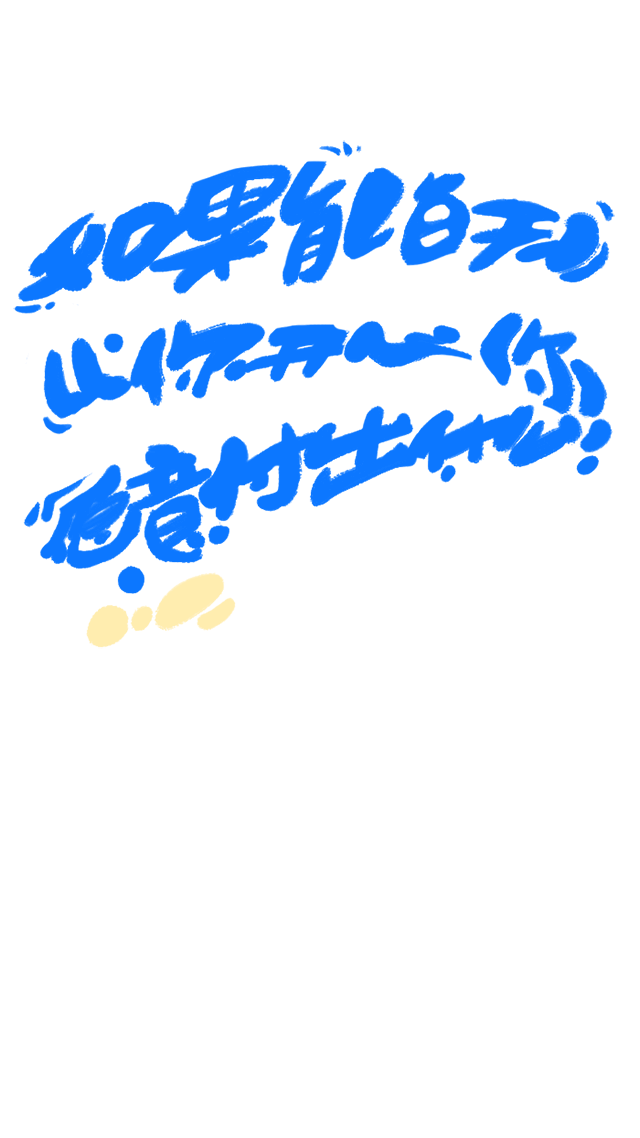 如果能百天
让你开心 你
愿意付出什么?